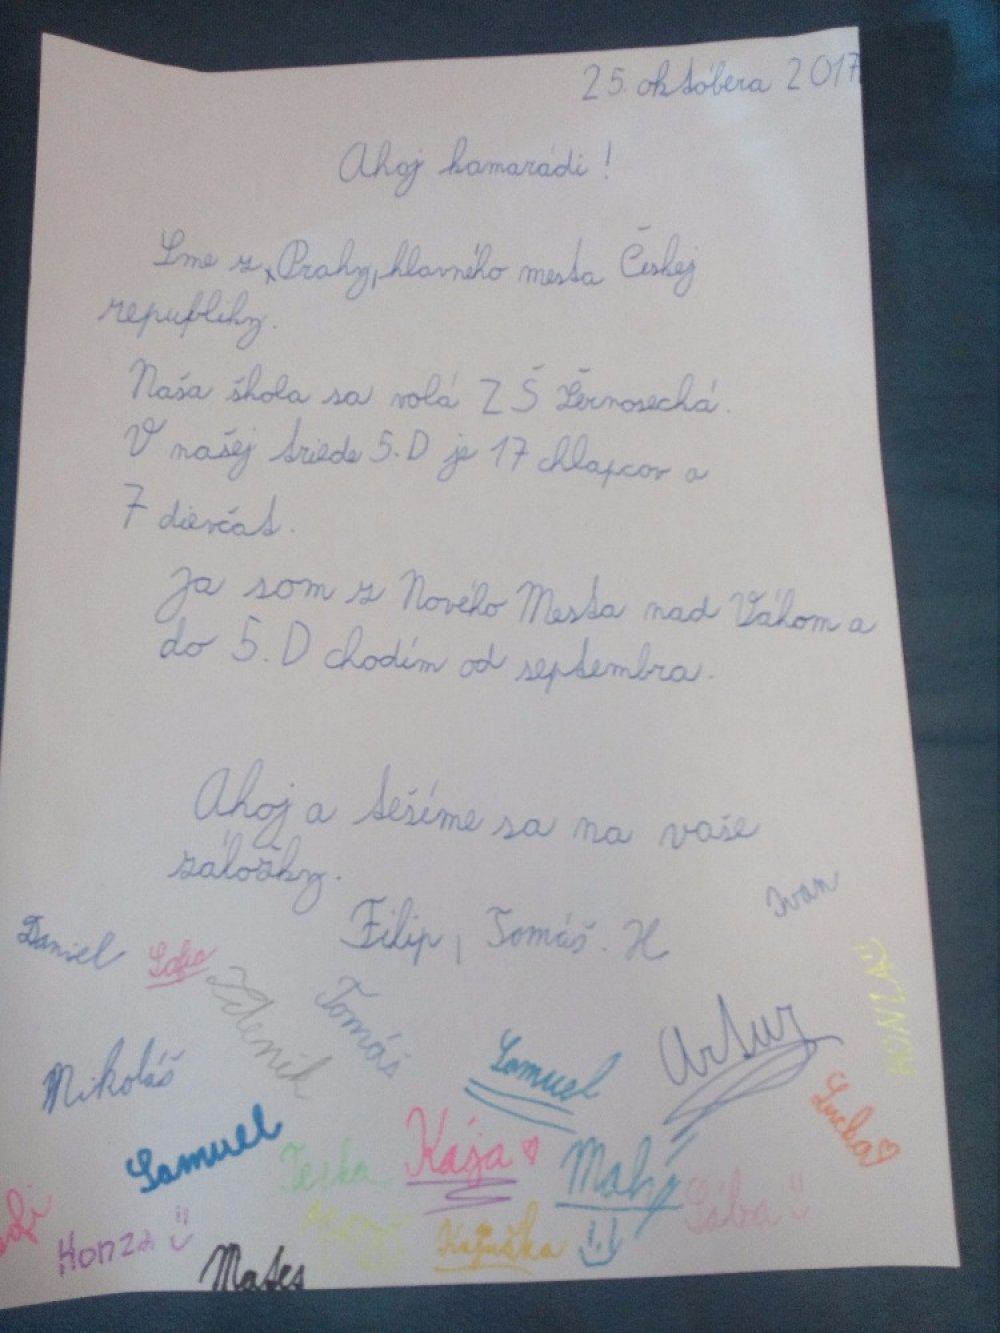 25. októbera 2017
Ahoj kamarádi!
Sme z Prahy, hlavného mesta Českej
republiky.
Naša škola sa volá ZŠ Černosecká.
V našej triede 5.D je 17 chlapcov a
7 dievčat.
Ja som z Nového Mesta nad Váhom a
do 5.D chodím od septembra.
Ahoj a tešíme sa na vaše
záložky.
Filip, Tomáš. H
Ivan
Daniel
Zdeník
Tomáš
HONZA
Mikoláš
Samuel
Artur
Lucka
Samuel
Terka
Kája
Mahy
Sába
Honza
Kajuška
Mates